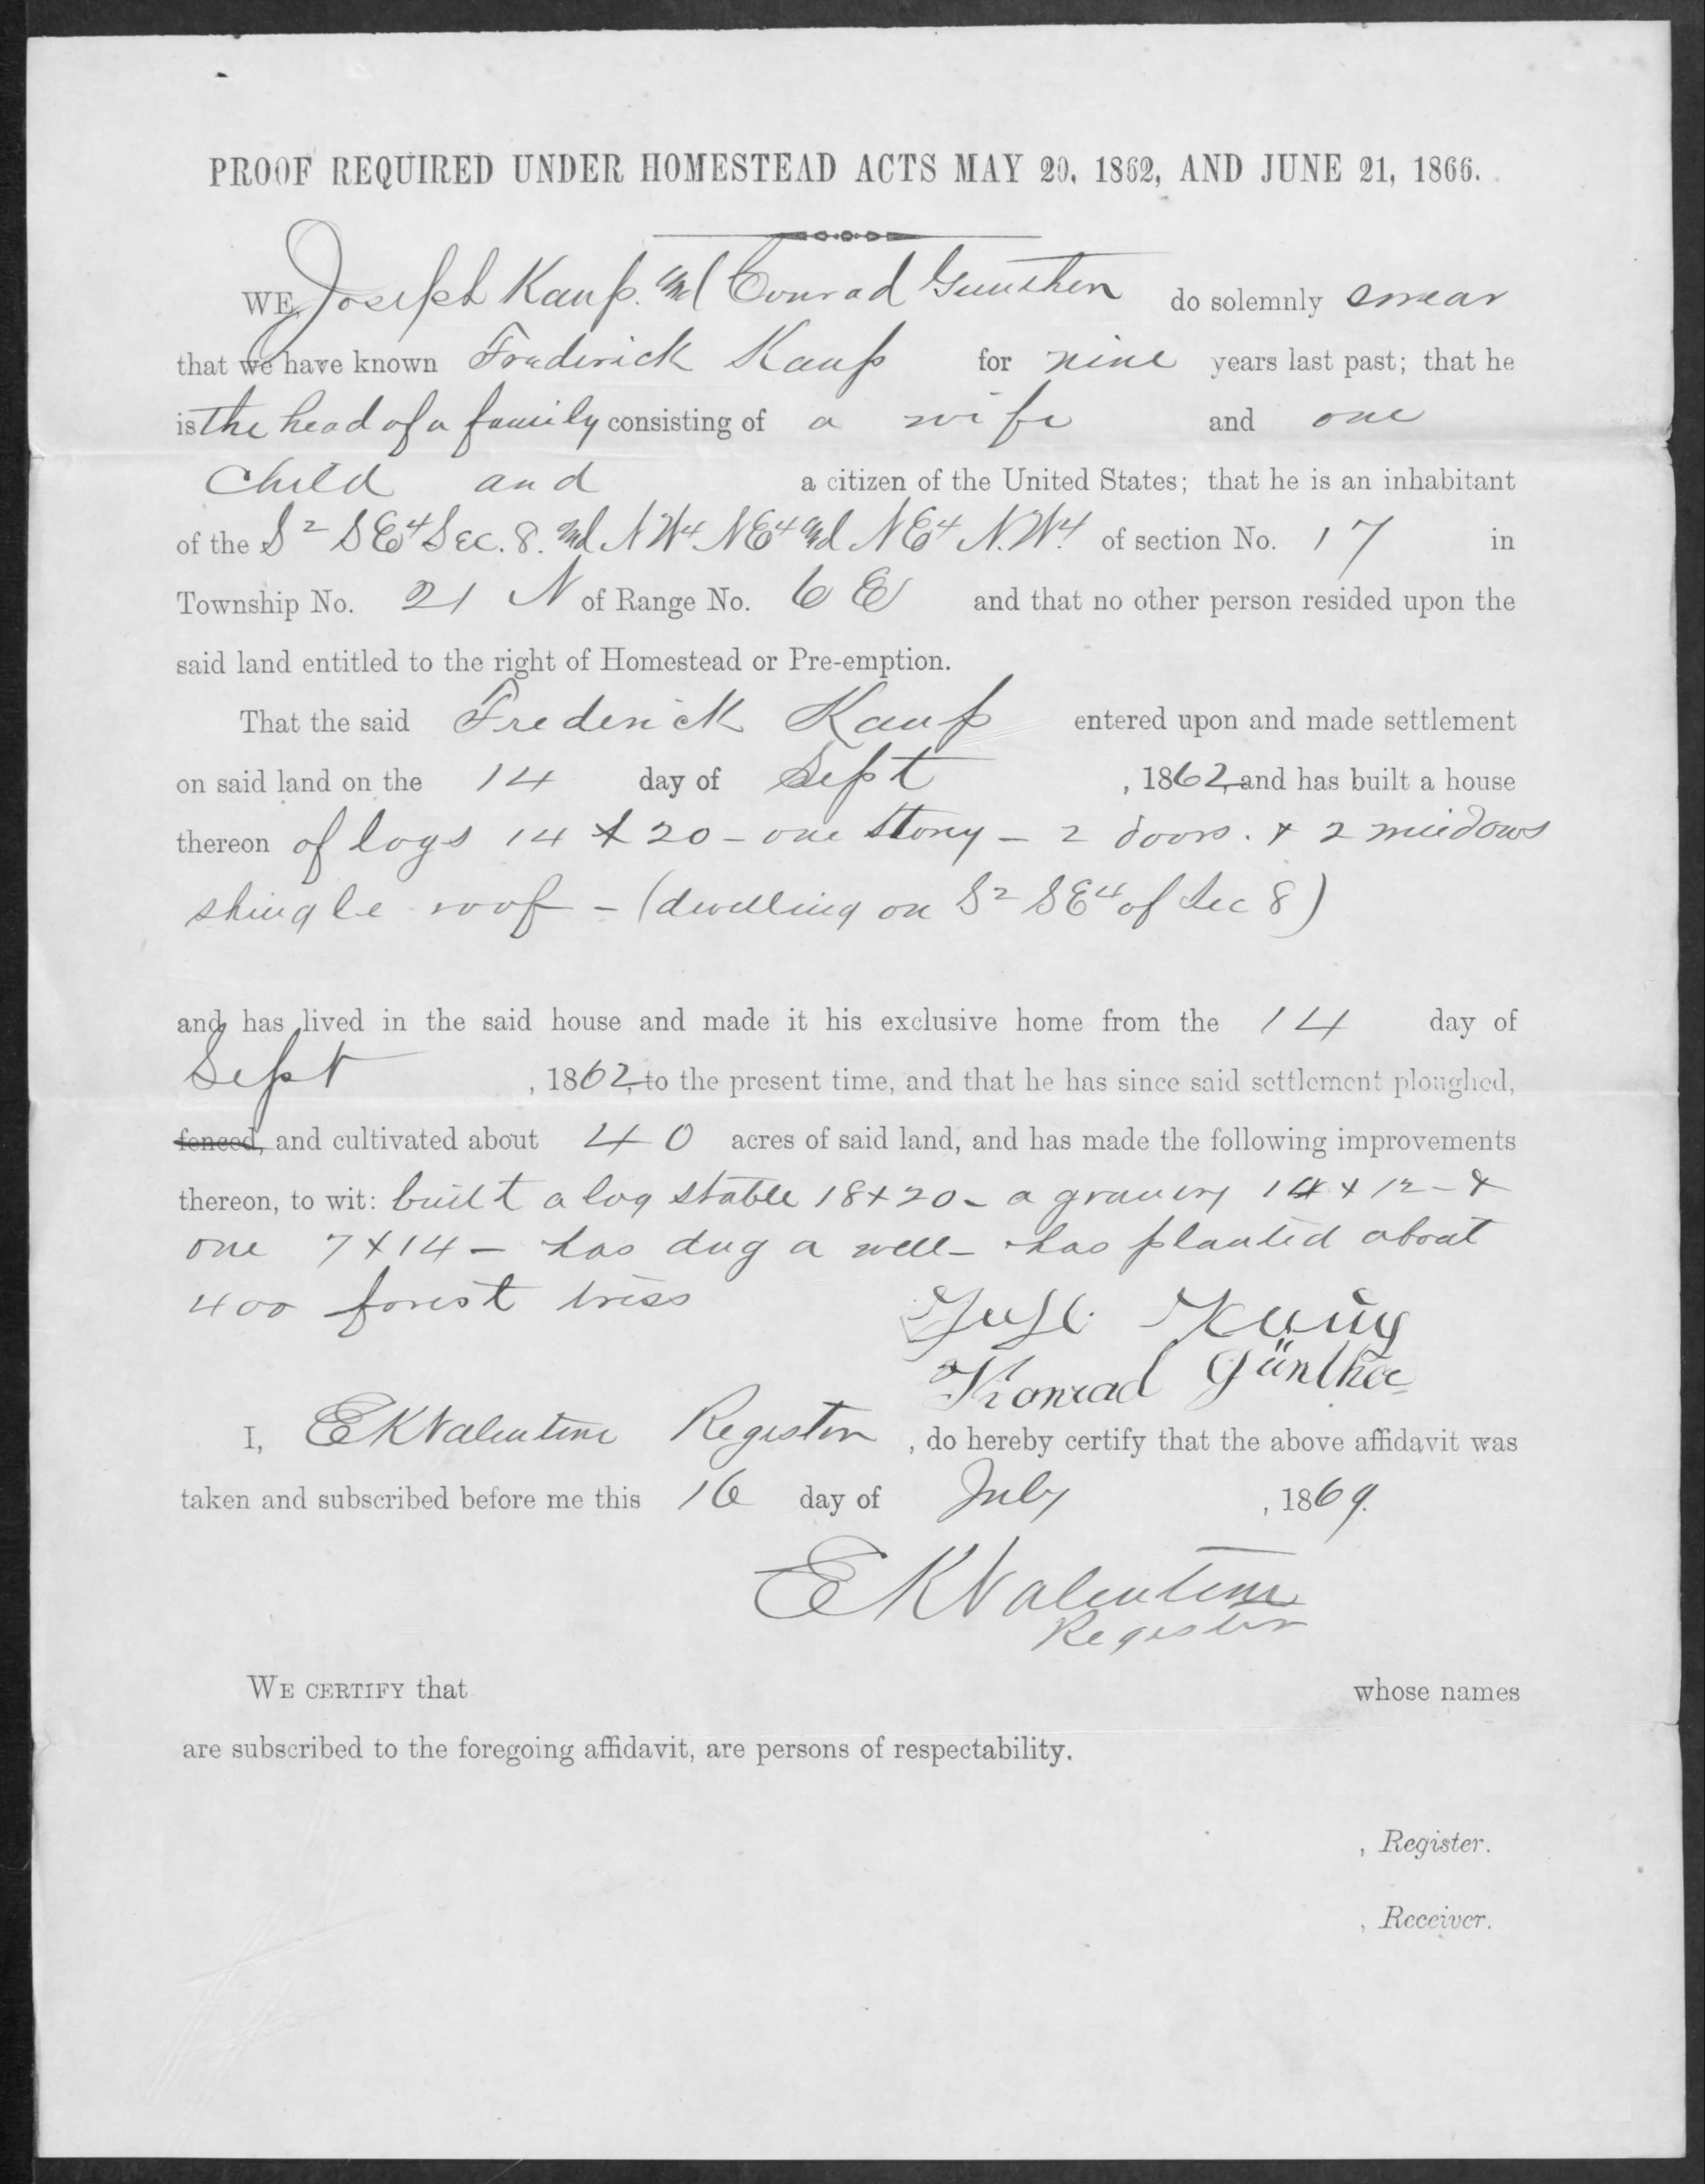 PROOF REQUIRED UNDER HOMESTEAD ACTS MAY 20, 1862, AND JUNE 21, 1866.
WE, Joseph Kaup. and Conrad Gunthen do solemnly swear
that we have known Frederick Kaup for nine years last past; that he
is the head of a family consisting of a wife and one
Child and a citizen of the United States; that he is an inhabitant
of the S2 SE4 Sec. 8. and NW4 NE4 and NE4 N.W.4 of section No. 17 in
Township No. 21 N of Range No. 6 E and that no other person resided upon the
said land entitled to the right of Homestead or Pre-emption.
That the said Frederick Kaup entered upon and made settlement
on said land on the 14 day of Sept , 1862, and has built a house
thereon of logs 14 x 20 - one Story - 2 doors. & 2 windows
shingle roof - (dwelling on S2 SE4 of Sec 8)
and has lived in the said house and made it his exclusive home from the 14 day of
Sept , 1862, to the present time, and that he has since said settlement ploughed,
fenced, and cultivated about 40 acres of said land, and has made the following improvements
thereon, to wit: built a log stable 18 x 20 - a granery 14 x 12 - &
one 7 x 14 - has dug a well - has planted about
400 forest trees
Konrad Günther
I, E K Valentine Register , do hereby certify that the above affidavit was
taken and subscribed before me this 16 day of July , 1869.
E K Valentine
Register
WE CERTIFY that whose names
are subscribed to the foregoing affidavit, are persons of respectability.
, Register.
, Receiver.